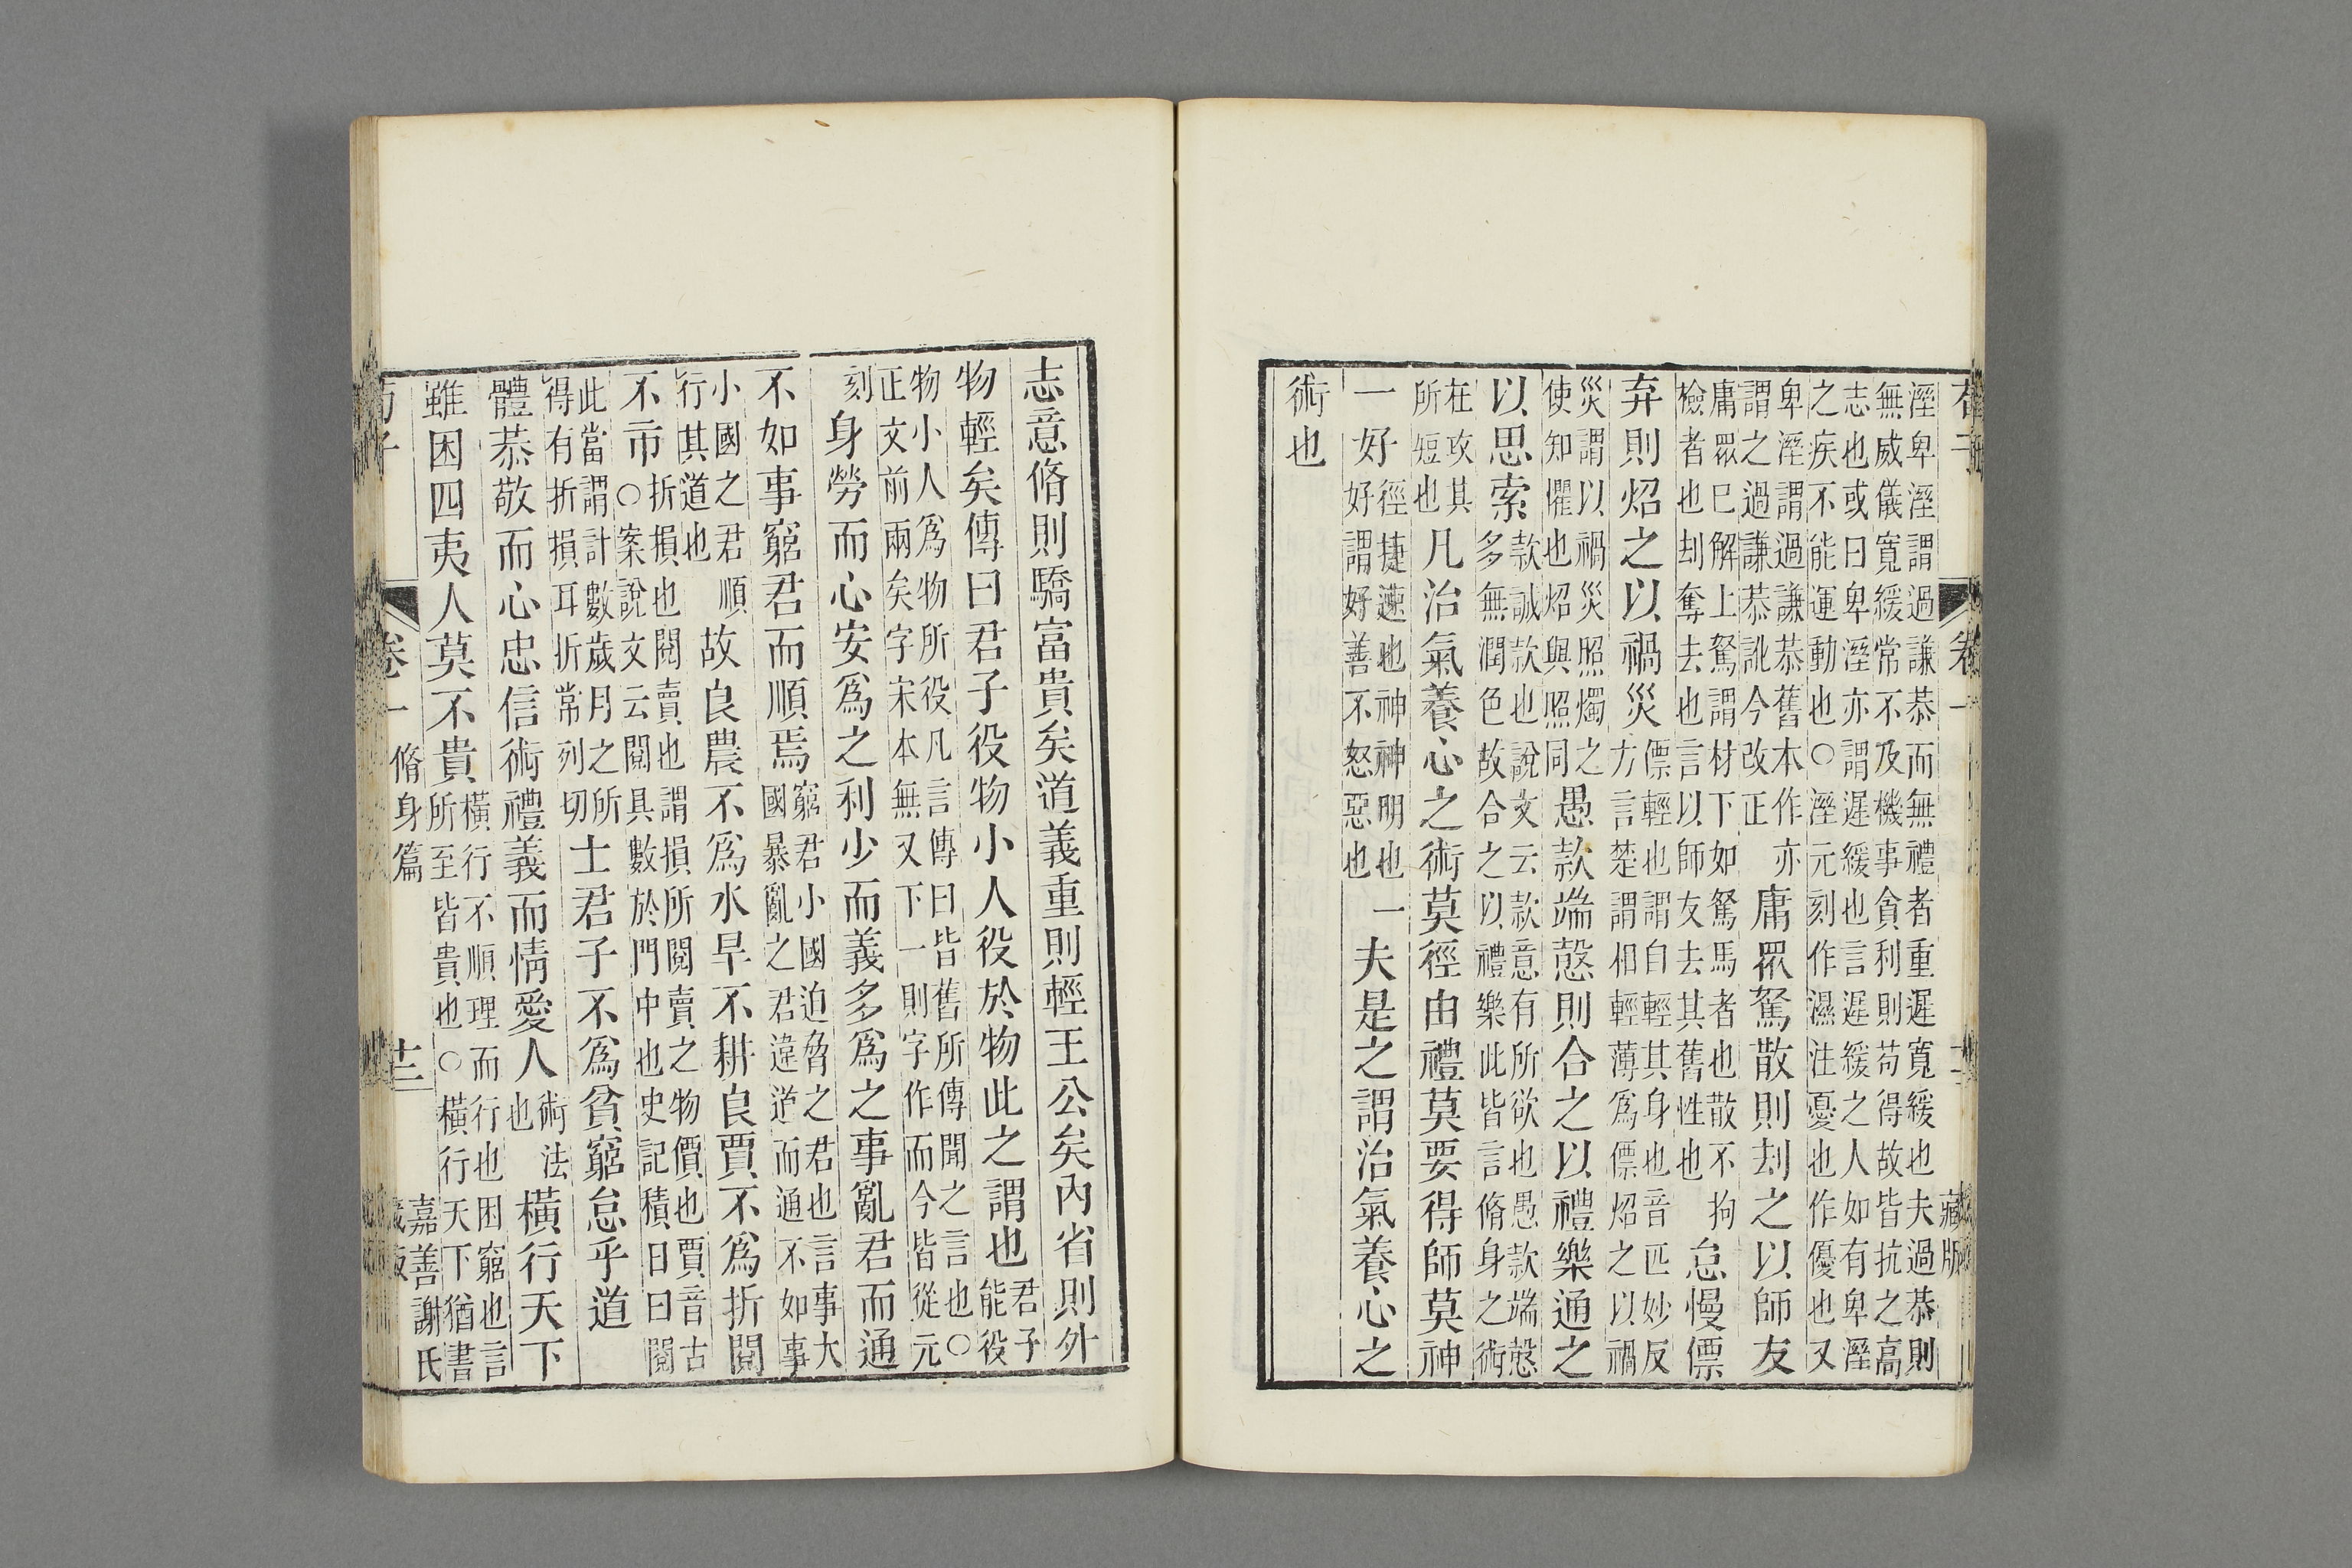 荀子 卷一 藏版
溼卑溼謂過謙恭而無禮者重遲寬緩也夫過恭則
無威儀寬緩常不及機事貪利則苟得故皆抗之高
志也或曰卑溼亦謂遲緩也言遲緩之人如有卑溼
之疾不能運動也○溼元刻作濕注憂也作優也又
卑溼謂過謙恭舊本作亦
謂之過謙恭訛今改正
庸眾駑散則刦之以師友
庸眾巳解上駑謂材下如駑馬者也散不拘
檢者也刦奪去也言以師友去其舊性也
怠慢僄
弃則炤之以禍災
僄輕也謂自輕其身也音匹妙反
方言楚謂相輕薄爲僄炤之以禍
災謂以禍災照燭之
使知懼也炤與照同
愚款端慤則合之以禮樂通之
以思索
款誠款也說文云款意有所欲也愚款端慤
多無潤色故合之以禮樂此皆言脩身之術
在攻其
所短也
凡治氣養心之術莫徑由禮莫要得師莫神
一好
徑捷速也神神明也
好謂好善不怒惡也
一夫是之謂治氣養心之
術也
志意脩則驕富貴矣道義重則輕王公矣內省則外
物輕矣傳曰君子役物小人役於物此之謂也
君子
能役
物小人爲物所役凡言傳曰皆舊所傳聞之言也○
正文前兩矣字宋本無又下一則字作而今皆從元
刻
身勞而心安爲之利少而義多爲之事亂君而通
不如事窮君而順焉
窮君小國迫脅之君也言事大
國暴亂之君違道而通不如事
小國之君順
行其道也
故良農不爲水旱不耕良賈不爲折閱
不市
折損也閱賣也謂損所閱賣之物價也賈音古
○案說文云閱具數於門中也史記積日曰閱
此當謂計數歲月之所
得有折損耳折常列切
士君子不爲貧窮怠乎道
體恭敬而心忠信術禮義而情愛人
術法
也
橫行天下
雖困四夷人莫不貴
橫行不順理而行也困窮也言
所至皆貴也○橫行天下猶書
荀子 卷一 脩身篇 十二 嘉善謝氏
藏版